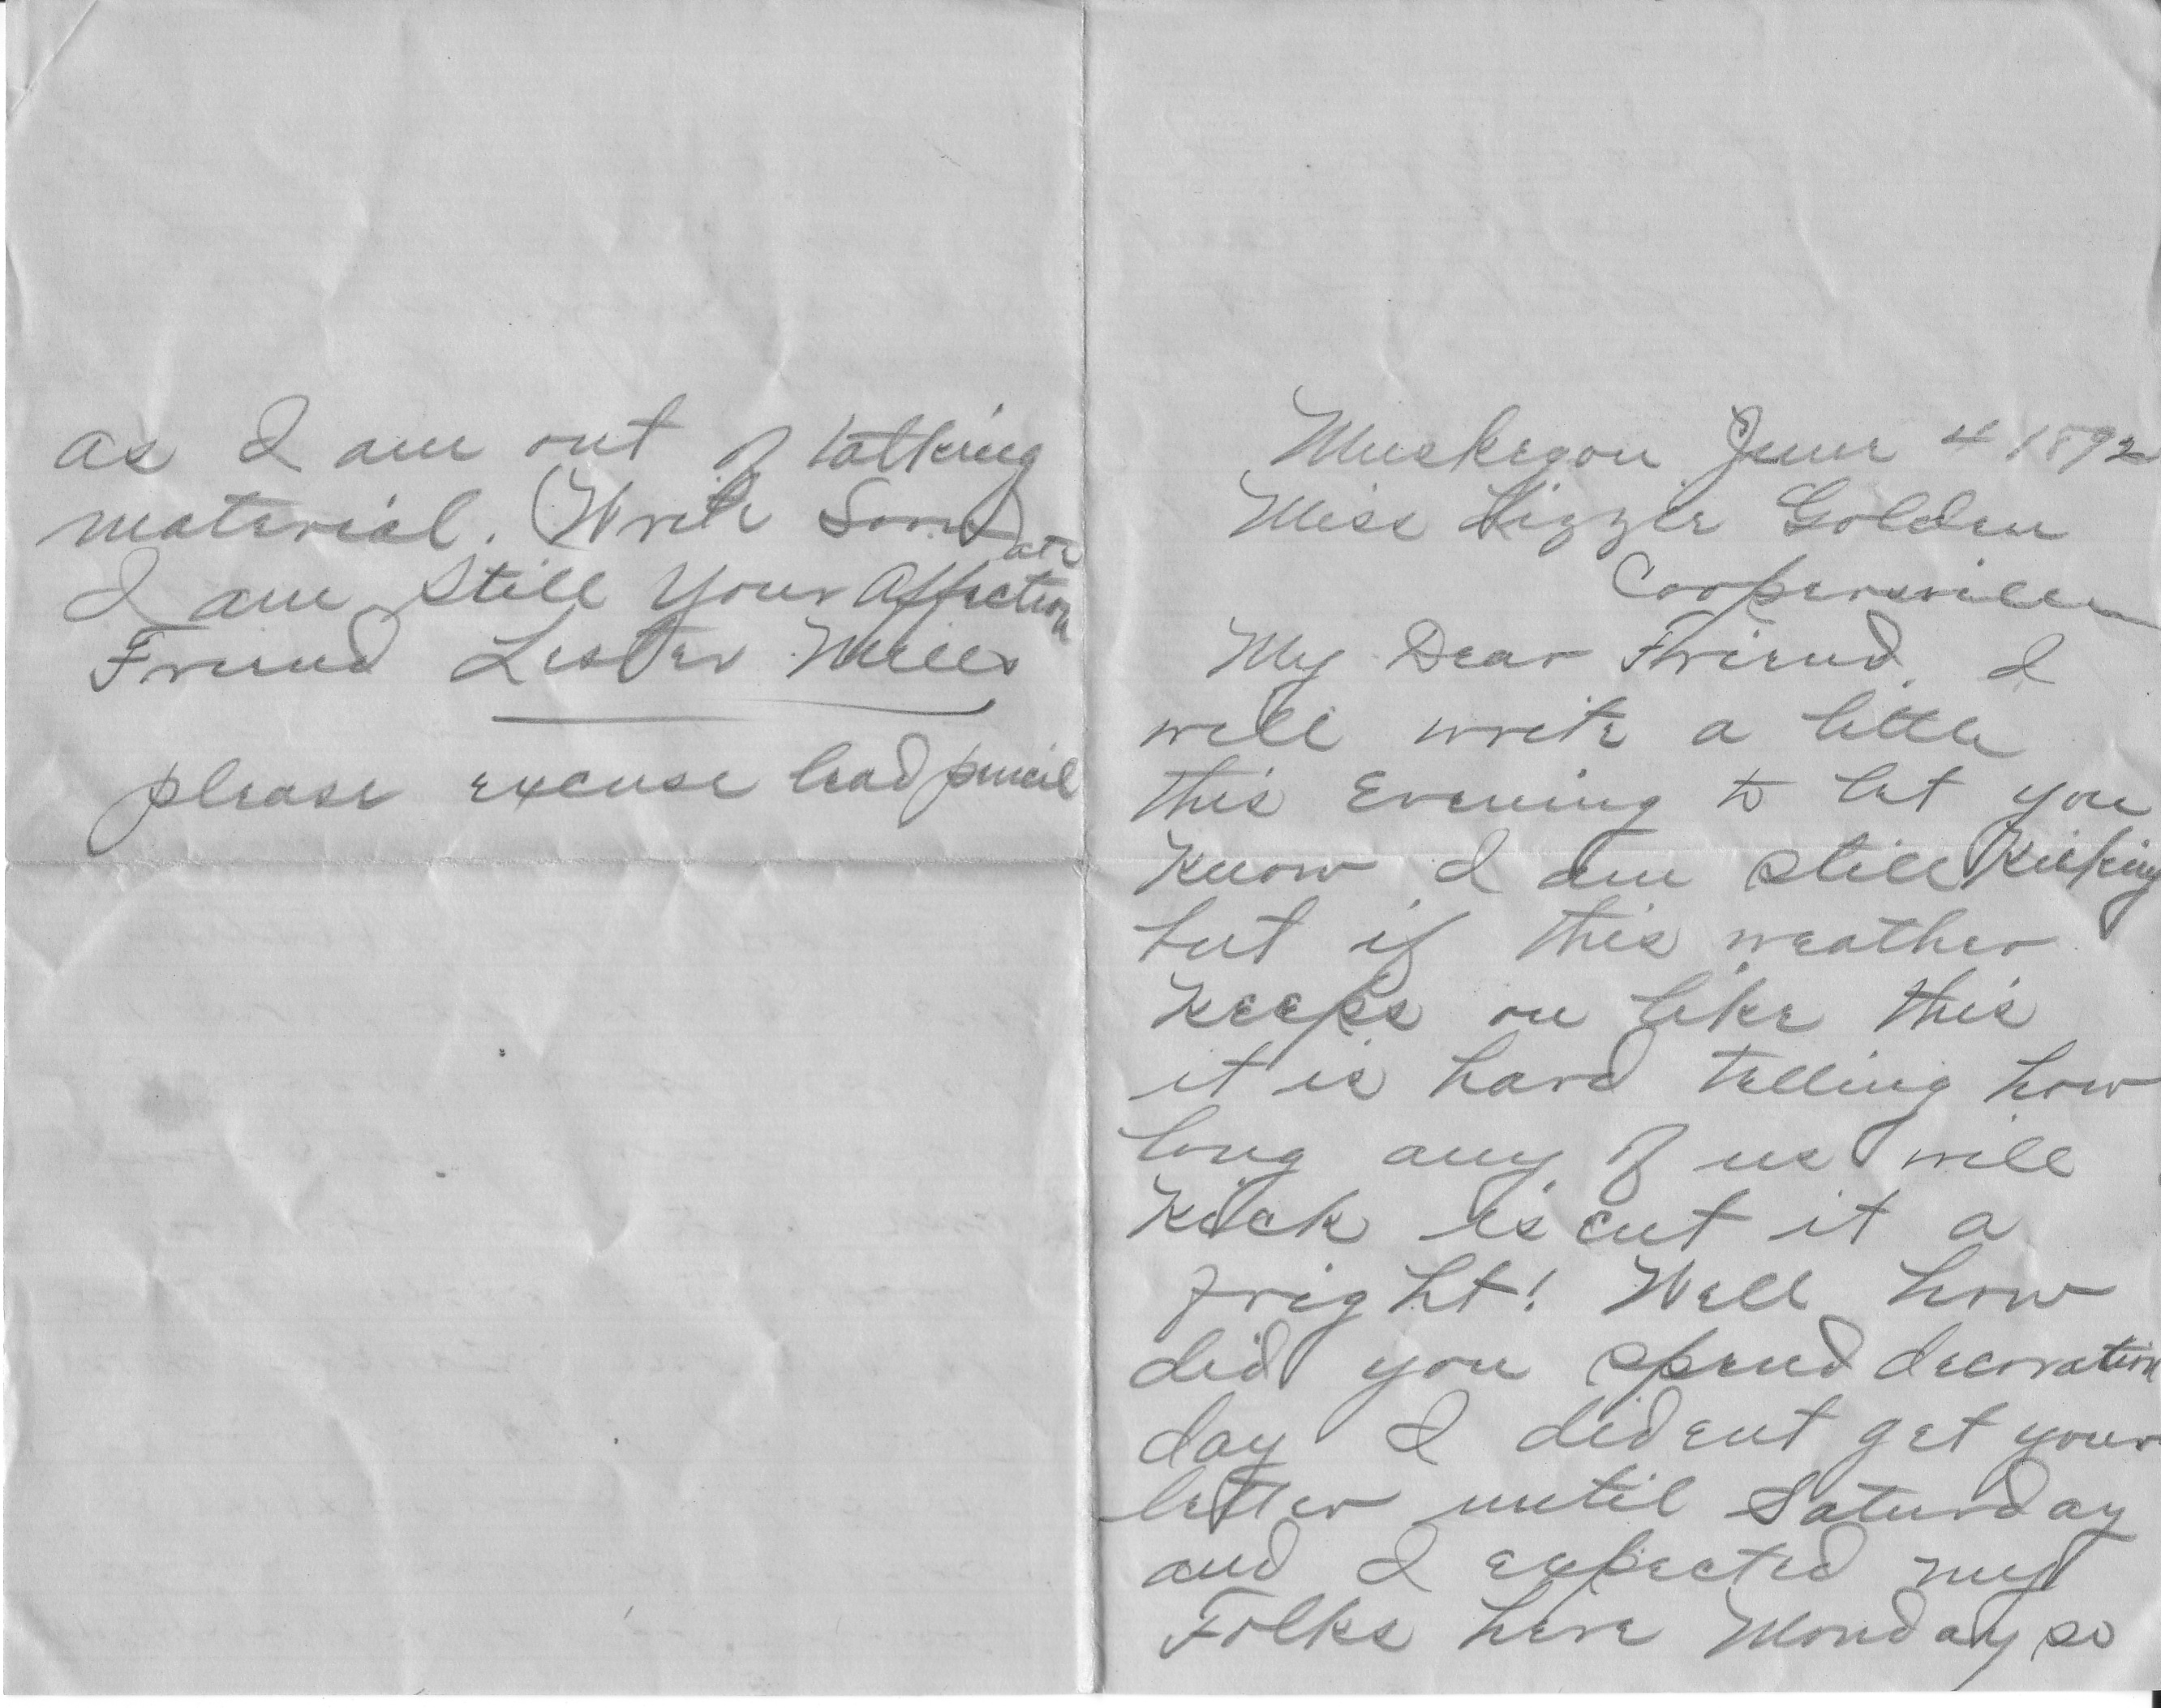 Muskegon June 4 1892
Miss Lizzie Golden
Coopersville
My Dear Friend. I
will write a little
this Evening to let you
Know I am still Kicking
but if this weather
Keeps on like this
it is hard telling how
long any of us will
Kick is ent it a
fright! Well how
did you spend decoration
day I did ent get your
letter until Saturday
and I expected my
Folks here Monday so
as I am out of talking
material. Write Soon
I am Still Your Affectionate
Friend Lester Mills
please excuse lead pencil